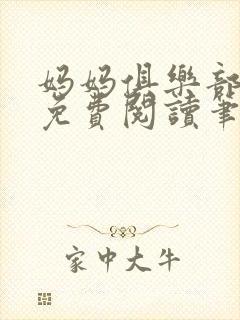 妈妈俱樂部
免費閱讀筆
家中大牛